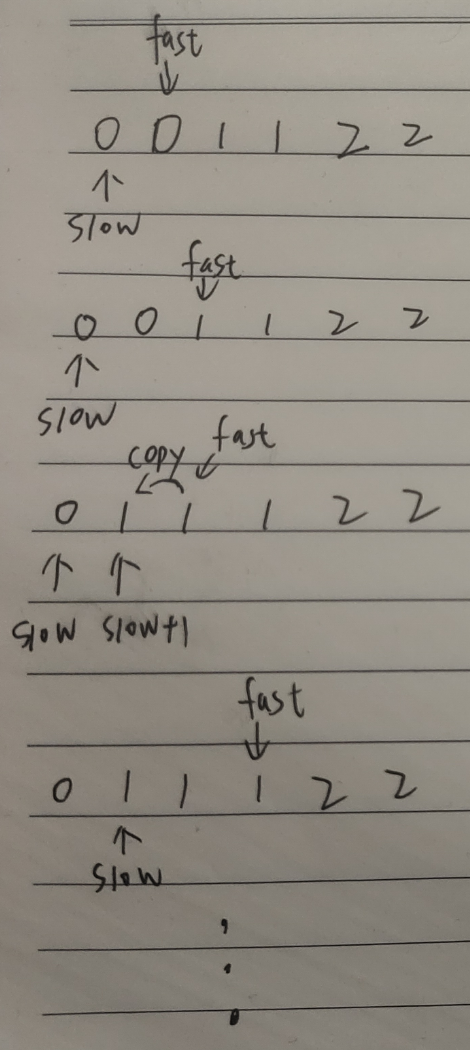 fast
0 0 1 1 2 2
slow
fast
0 0 1 1 2 2
slow
copy fast
0 1 1 1 2 2
slow slow+1
fast
0 1 1 1 2 2
slow